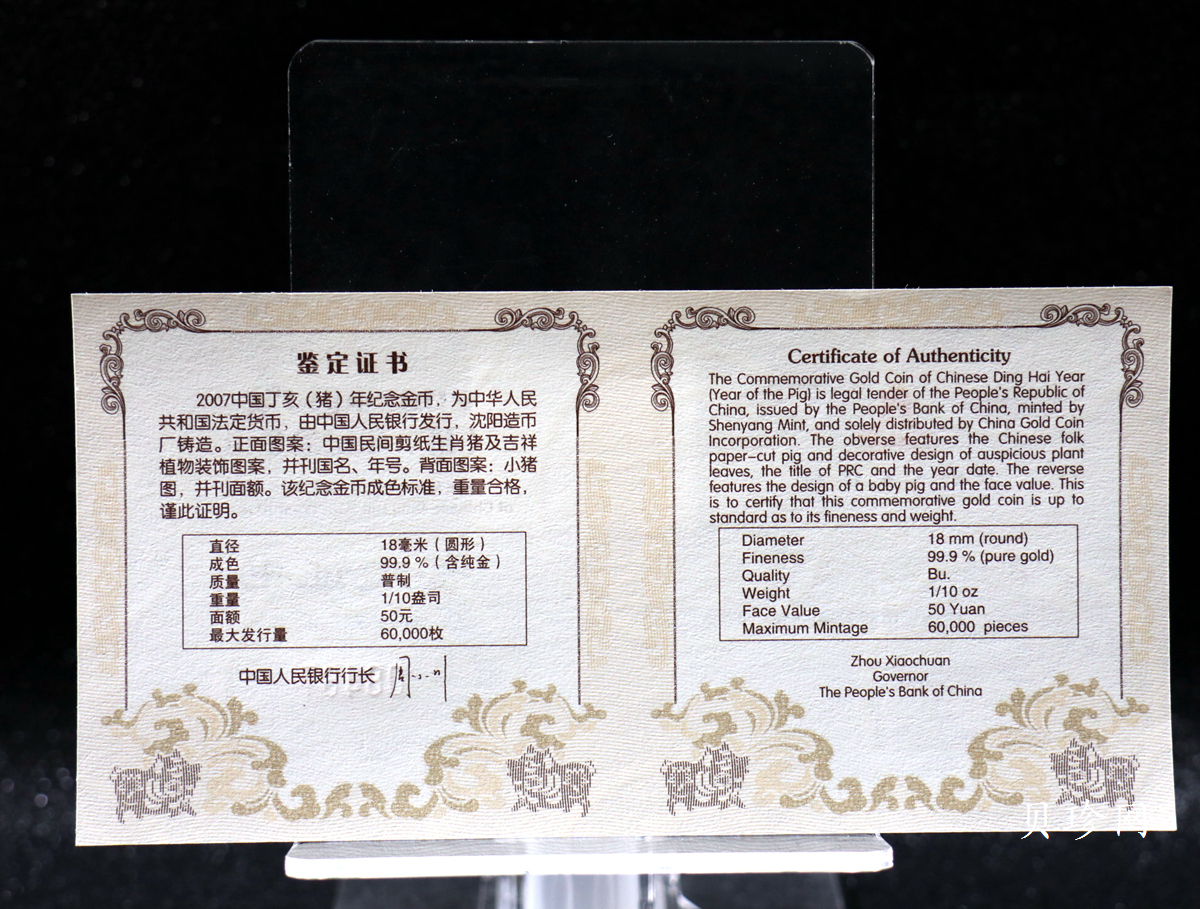 鉴定证书
2007中国丁亥（猪）年纪念金币，为中华人民
共和国法定货币，由中国人民银行发行，沈阳造币
厂铸造。正面图案：中国民间剪纸生肖猪及吉祥
植物装饰图案，并刊国名、年号。背面图案：小猪
图，并刊面额。该纪念金币成色标准，重量合格，
谨此证明。
直径 18毫米（圆形）
成色 99.9 %（含纯金）
质量 普制
重量 1/10盎司
面额 50元
最大发行量 60,000枚
中国人民银行行长
Certificate of Authenticity
The Commemorative Gold Coin of Chinese Ding Hai Year
(Year of the Pig) is legal tender of the People's Republic of
China, issued by the People's Bank of China, minted by
Shenyang Mint, and solely distributed by China Gold Coin
Incorporation. The obverse features the Chinese folk
paper–cut pig and decorative design of auspicious plant
leaves, the title of PRC and the year date. The reverse
features the design of a baby pig and the face value. This
is to certify that this commemorative gold coin is up to
standard as to its fineness and weight.
Diameter 18 mm (round)
Fineness 99.9 % (pure gold)
Quality Bu.
Weight 1/10 oz
Face Value 50 Yuan
Maximum Mintage 60,000 pieces
Zhou Xiaochuan
Governor
The People's Bank of China
贝珍网